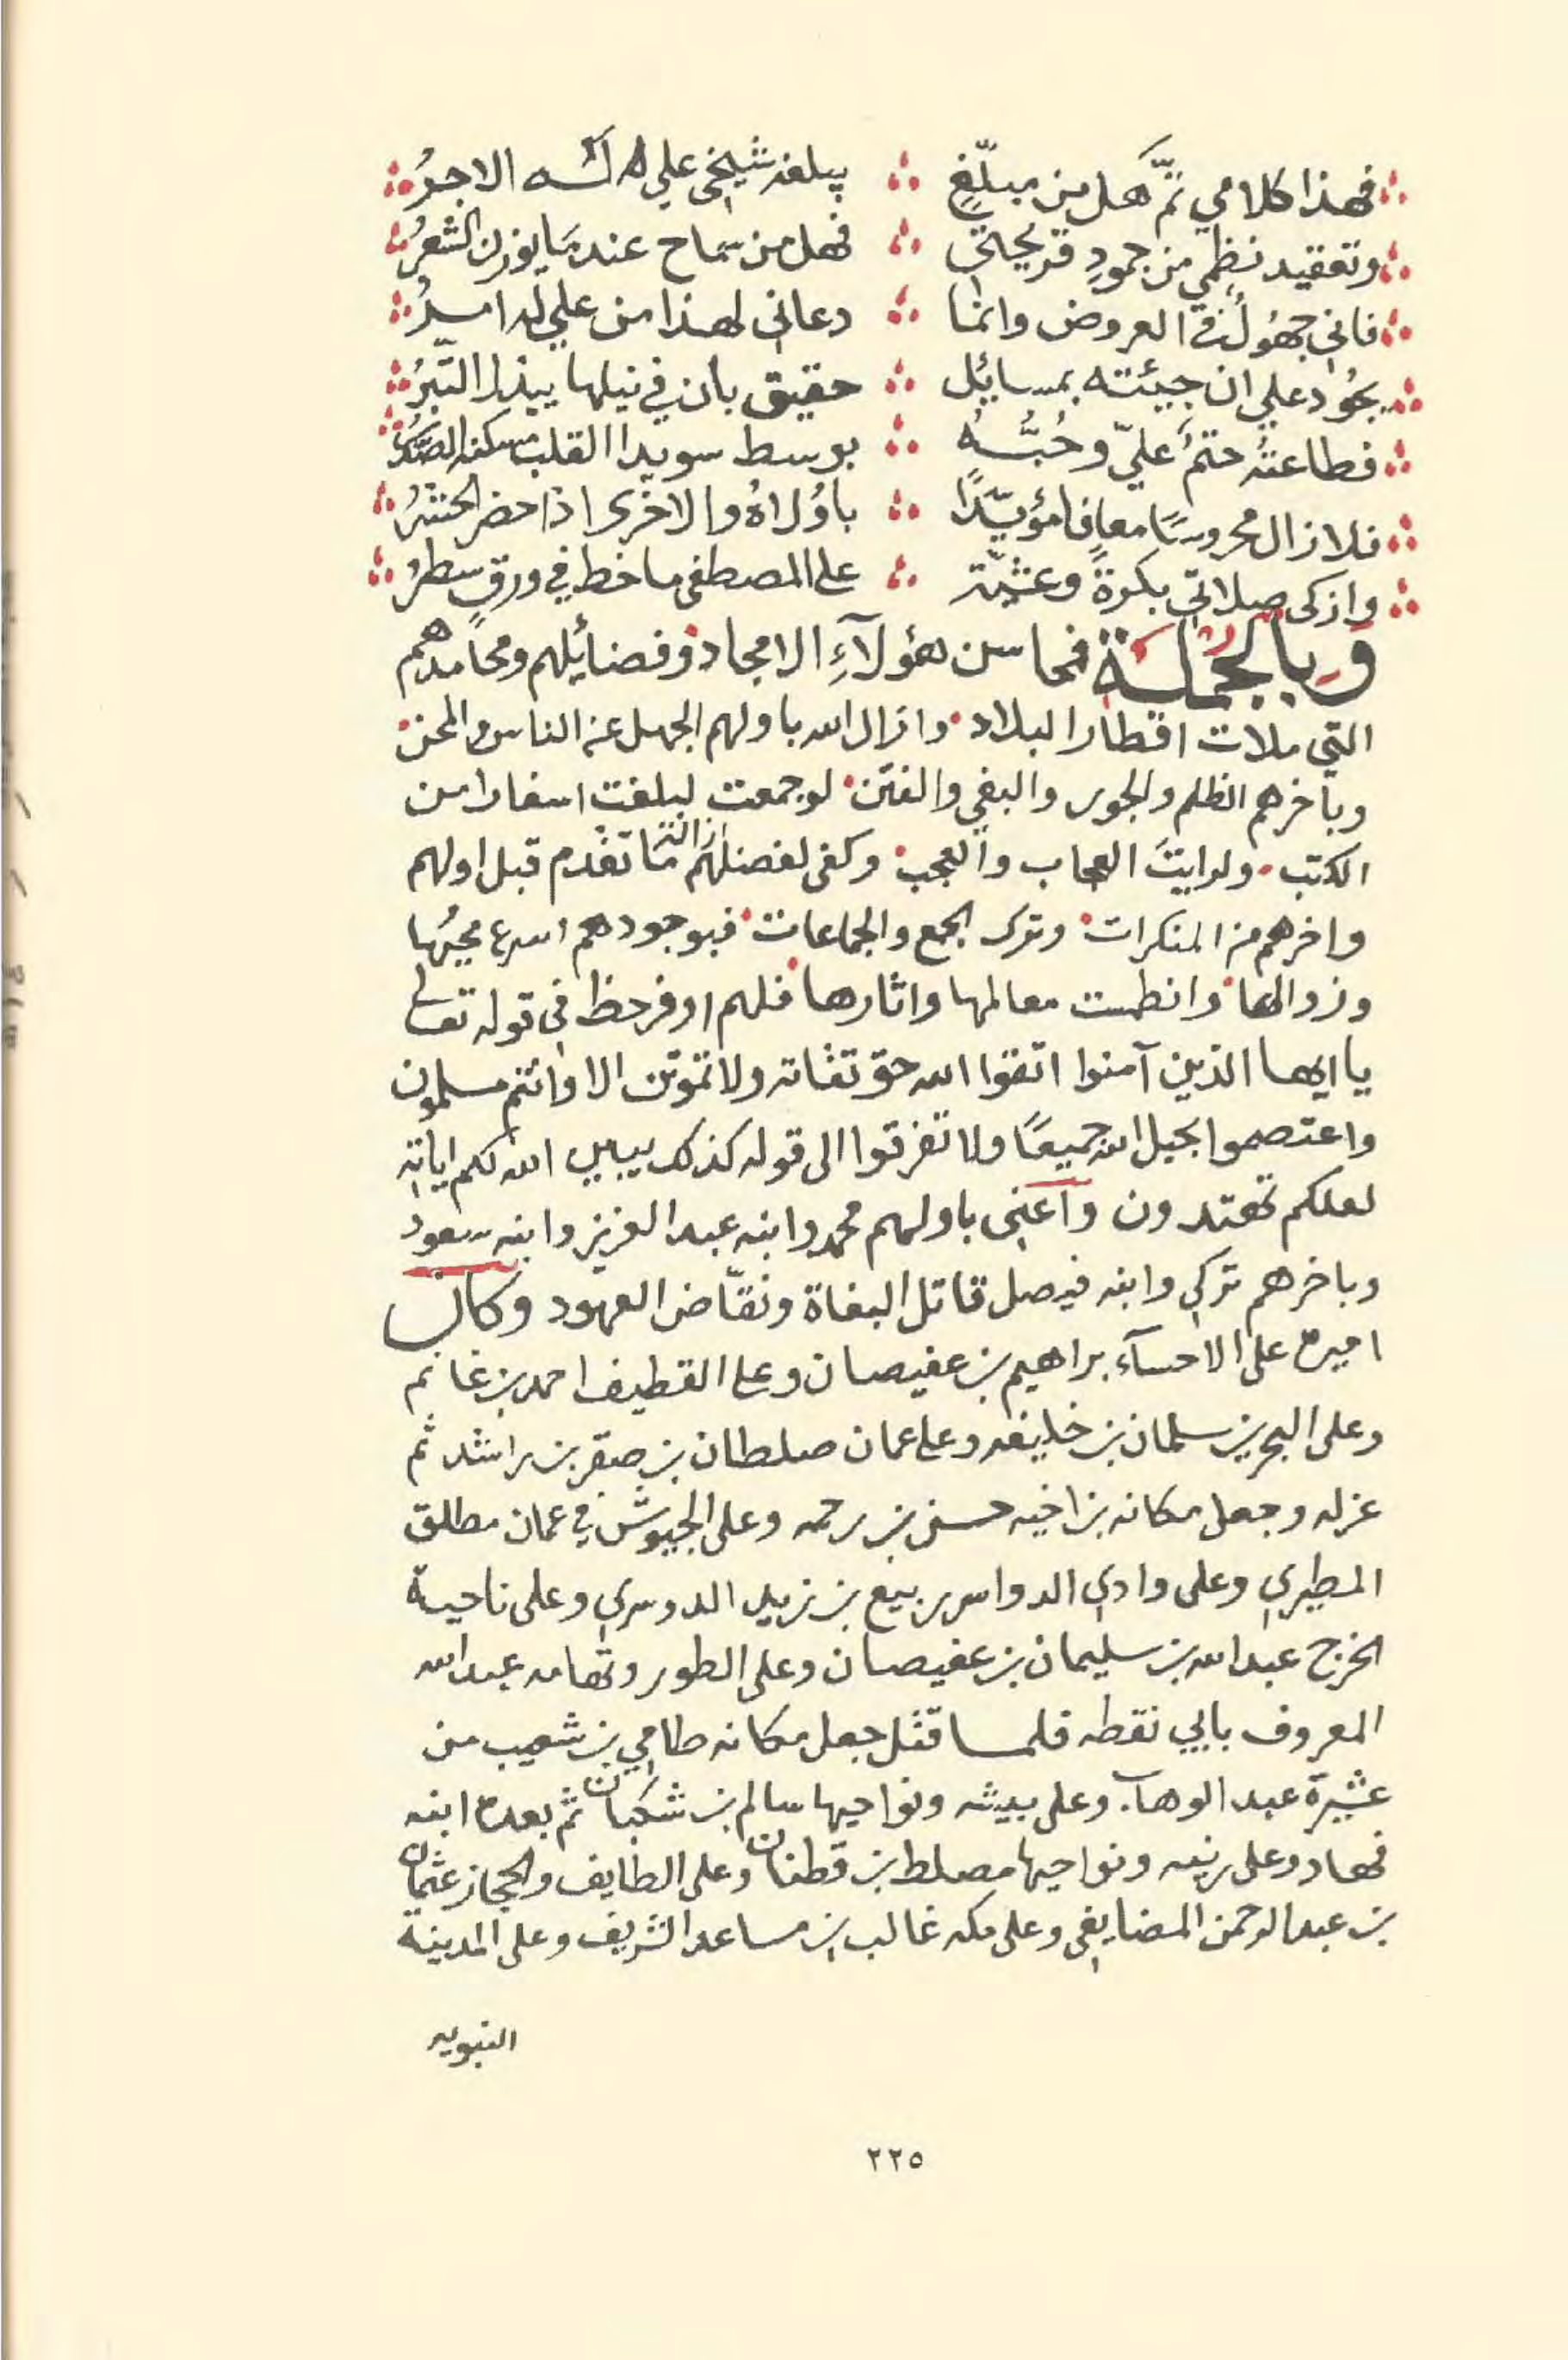 فهذا كلامي تمَّ هل من مبلّغٍ ∴ يبلغه شيخي علي له الاجرُ
وتعقيد نظمي من جمودِ قريحتي ∴ فهل من سماح عندما يوزن الشعرُ
فاني جهُولٌ في العروض وانما ∴ دعاني لهذا من علي له امرُ
يجُود علي ان جيئته بمسايُل ∴ حقيق بان في نيلها يبذل التّبرُ
فطاعته حتمٌ عليّ وحُبُّهُ ∴ بوسط سويدا القلب مسكنه الصّدرُ
فلا زال محروسًا معافا مؤيّدًا ∴ باوُلاهُ والاخرى اذا حضر الحشرُ
وازكى صلاتي بكرةً وعشيّة ∴ على المصطفى ما خط في ورقٍ سطرُ
وبالجملة فمحاسن هؤلآءِ الامجاد وفضائلهم ومحامدهم
التي ملات اقطار البلاد وازال الله باولهم الجهل عن الناس والمحن
وبآخرهم الظلم والجور والبغي والفتن لو جمعت لبلغت اسفارا من
الكتب ولرايتَ العجاب والعجب وكفى لفضلهم ازالة ما تقدم قبل اولهم
واخرهم من المنكرات وترك الجمع والجماعات فبوجودهم اسرع محيُها
وزوالها وانطمست معالمها واثارها فلهم اوفر حظ في قوله تعالى
يا ايها الذين آمنوا اتقوا الله حق تقاته ولا تموتن الا وانتم مسلمون
واعتصموا بحبل الله جميعًا ولا تفرقوا الى قوله كذلك يبين الله لكم اياته
لعلكم تهتدون واعني باولهم محمد وابنه عبد العزيز وابنه سعود
وباخرهم تركي وابنه فيصل قاتل البغاة ونقّاض العهود وكان
اميره على الاحسآء براهيم بن عفيصان وعلى القطيف احمد بن غانم
وعلى البحرين سلمان بن خليفه وعلى عمان صلطان بن صقر بن راشد ثم
عزله وجعل مكانه بن اخيه حسن بن رحمه وعلى الجيوش في عمان مطلق
المطيري وعلى وادي الدواسر ربيع بن زيد الدوسري وعلى ناحية
الخرج عبد الله بن سليمان بن عفيصان وعلى الطور وتهامه عبد الله
المعروف بابي نقطه فلما قتل جعل مكانه طامي بن شعيب من
عشيرة عبد الوهاب وعلى بيشه ونواحيها سالم بن شكبان ثم بعده ابنه
فهاد وعلى رنيه ونواحيها مصلط بن قطنان وعلى الطايف والحجاز عثمان
بن عبد الرحمن المضايفي وعلى مكه غالب بن مساعد الشريف وعلى المدينة
النبويه
٢٢٥